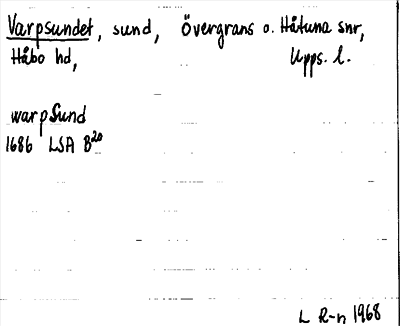 Varpsundet, sund, Övergrans o. Håtuna snr,
Håbo hd, Upps. l.
warpSund
1686 LSA B20
L R-n 1968